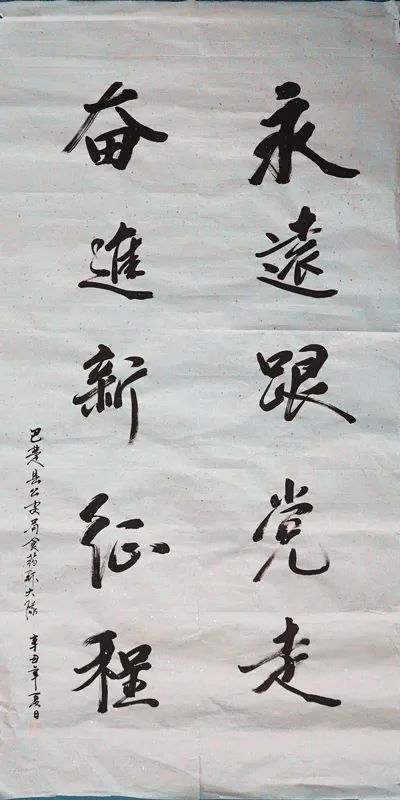 永遠跟党走
奮進新征程
巴楚县公安局食药环大队
辛丑年夏日